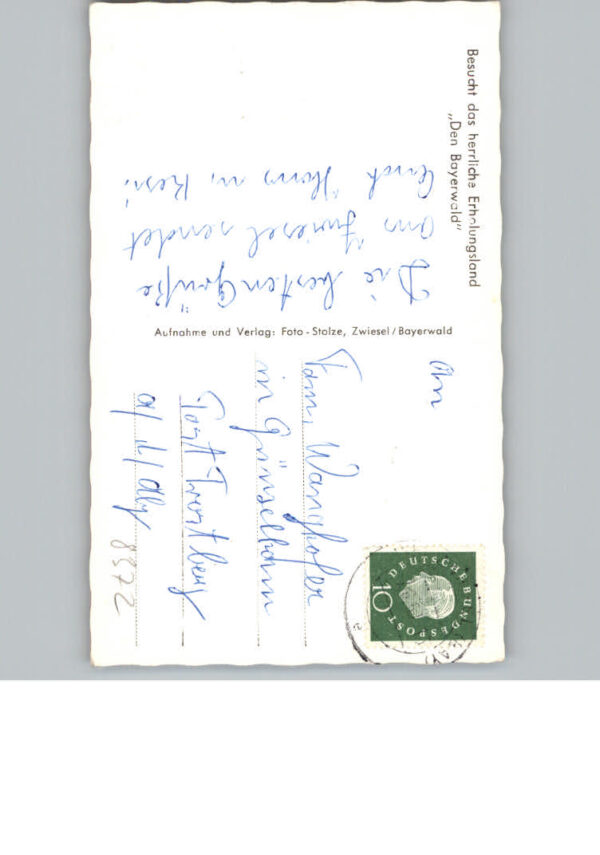 Besucht das herrliche Erholungsland
„Den Bayerwald"
Die besten Grüße
aus Zwiesel sendet
Euch Hans u. Resi.
Aufnahme und Verlag: Foto-Stolze, Zwiesel/Bayerwald
An
Fam. Wanghofer
in Günselham
Post Trostberg
a/d/Alz
8572
DEUTSCHE BUNDESPOST
10